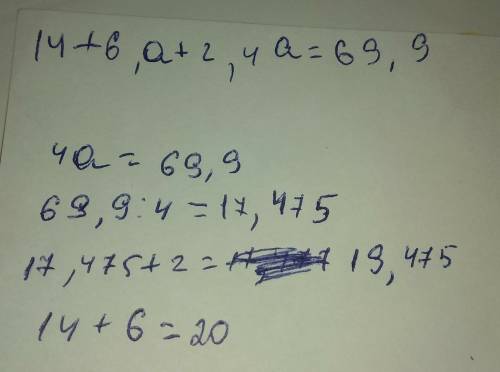 14+6,a+2,4a=69,9
4a=69,9
69,9:4=17,475
17,475+2= 19,475
14+6=20